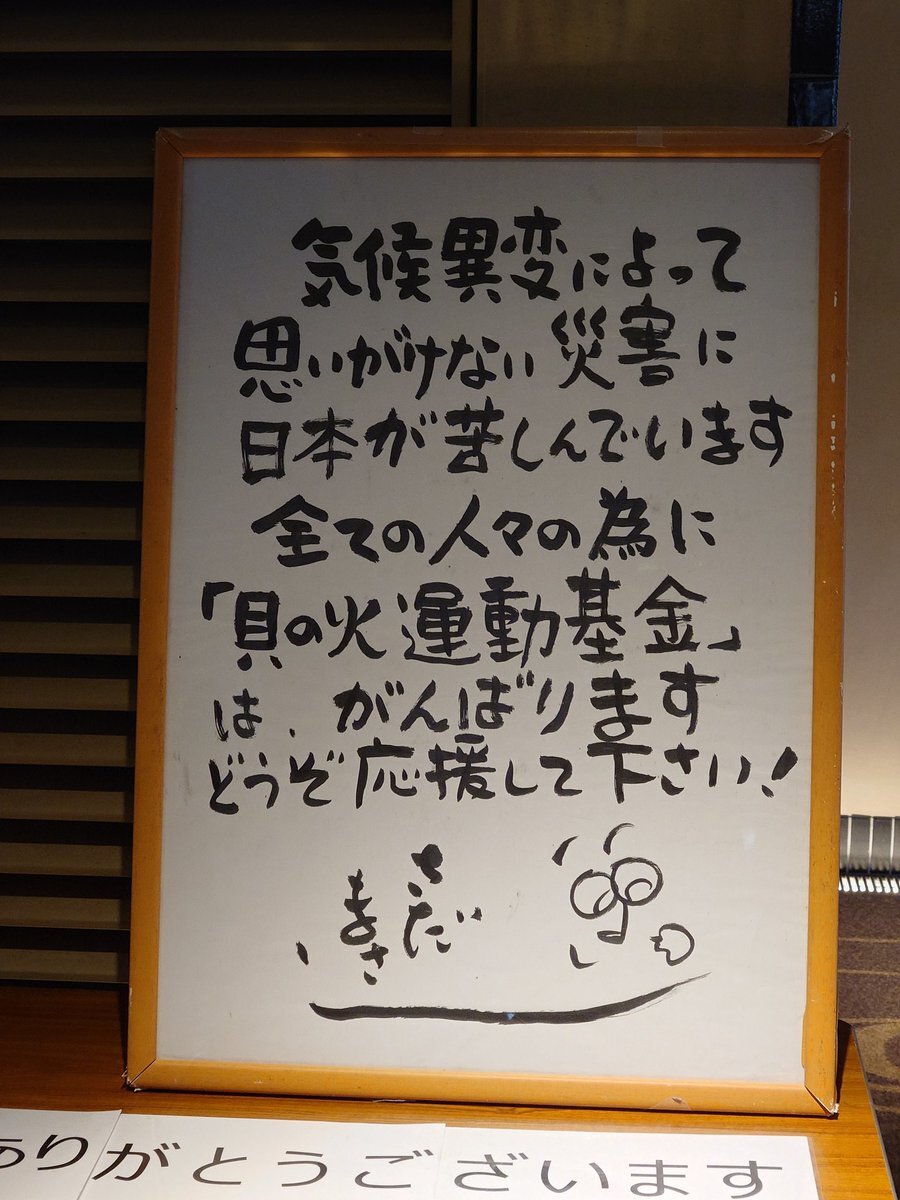 気候異変によって
思いがけない災害に
日本が苦しんでいます
全ての人々の為に
「貝の火運動基金」
は、がんばります
どうぞ応援して下さい!
さだ
まさし
ありがとうございます